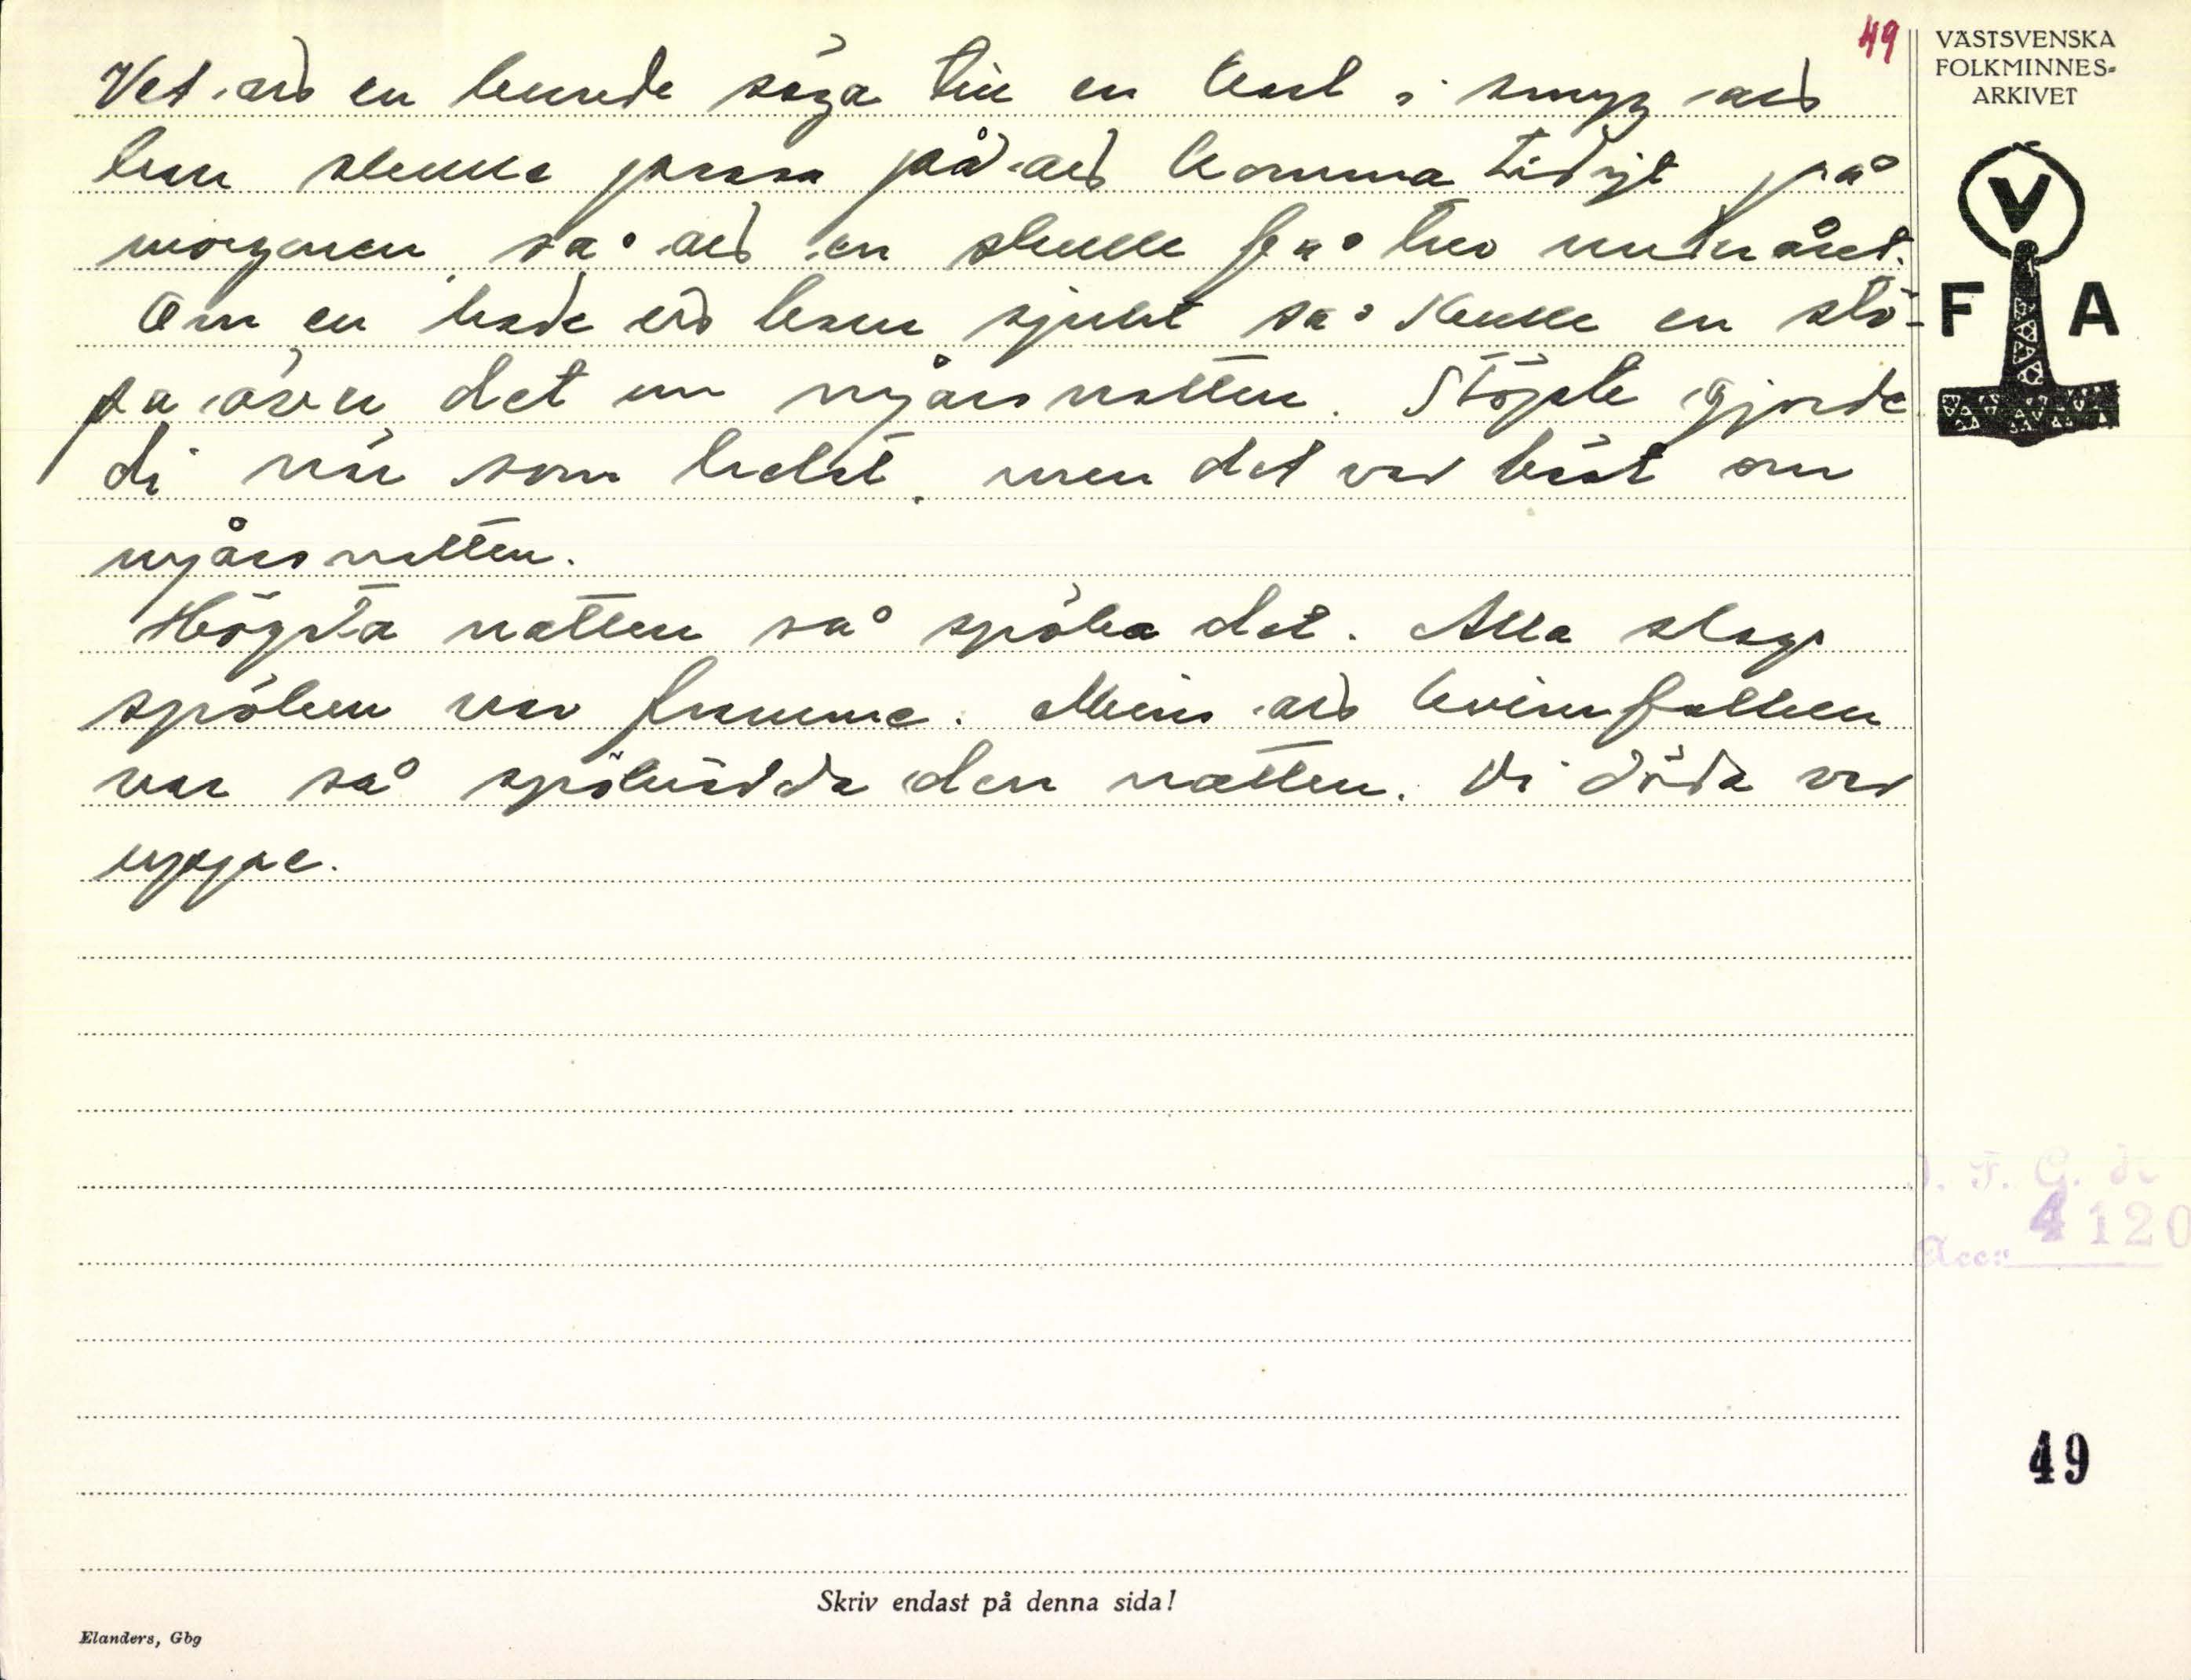 49
VÄSTSVENSKA
FOLKMINNES-
ARKIVET
Vet att en kunde säga till en karl i smyg att
han skulle passa på att komma tidigt på
morgonen så att en skulle få tur under året.
Om en hade ett barn sjukt så skulle en stö-
pa över det om nyårsnatten. Stöpte gjorde
di när som helst, men det var bäst om
nyårsnatten.
Högsta natten så spöka det. Alla slags
spöken var framme. Minns att kvinnfolken
var så spökrädda den natten. Di döda var
uppe.
V
F A
I. F. G. ds
Acc. 4120
49
Skriv endast på denna sida!
Elanders, Gbg